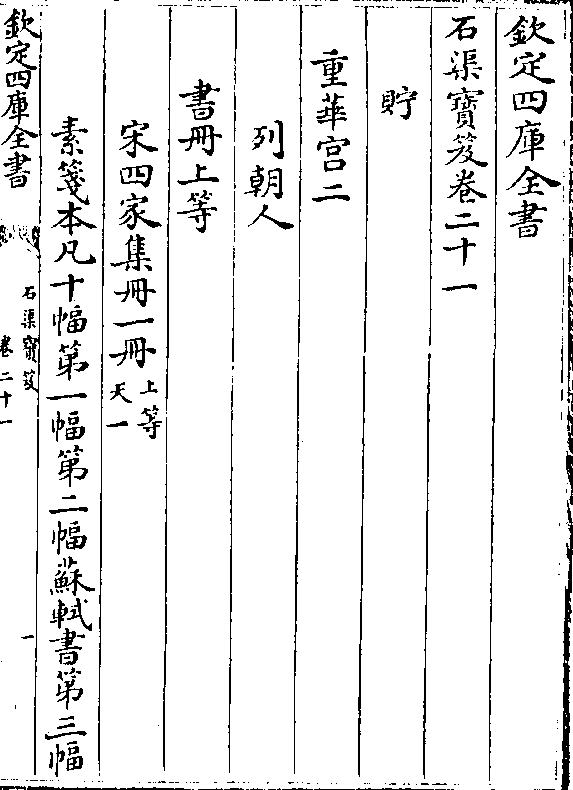 欽定四庫全書
石渠寶笈卷二十一
貯
重華宮二
列朝人
書冊上等
宋四家集冊一冊
上等
天一
素箋本凡十幅第一幅第二幅蘇軾書第三幅
欽定四庫全書
石渠寶笈
卷二十一
一